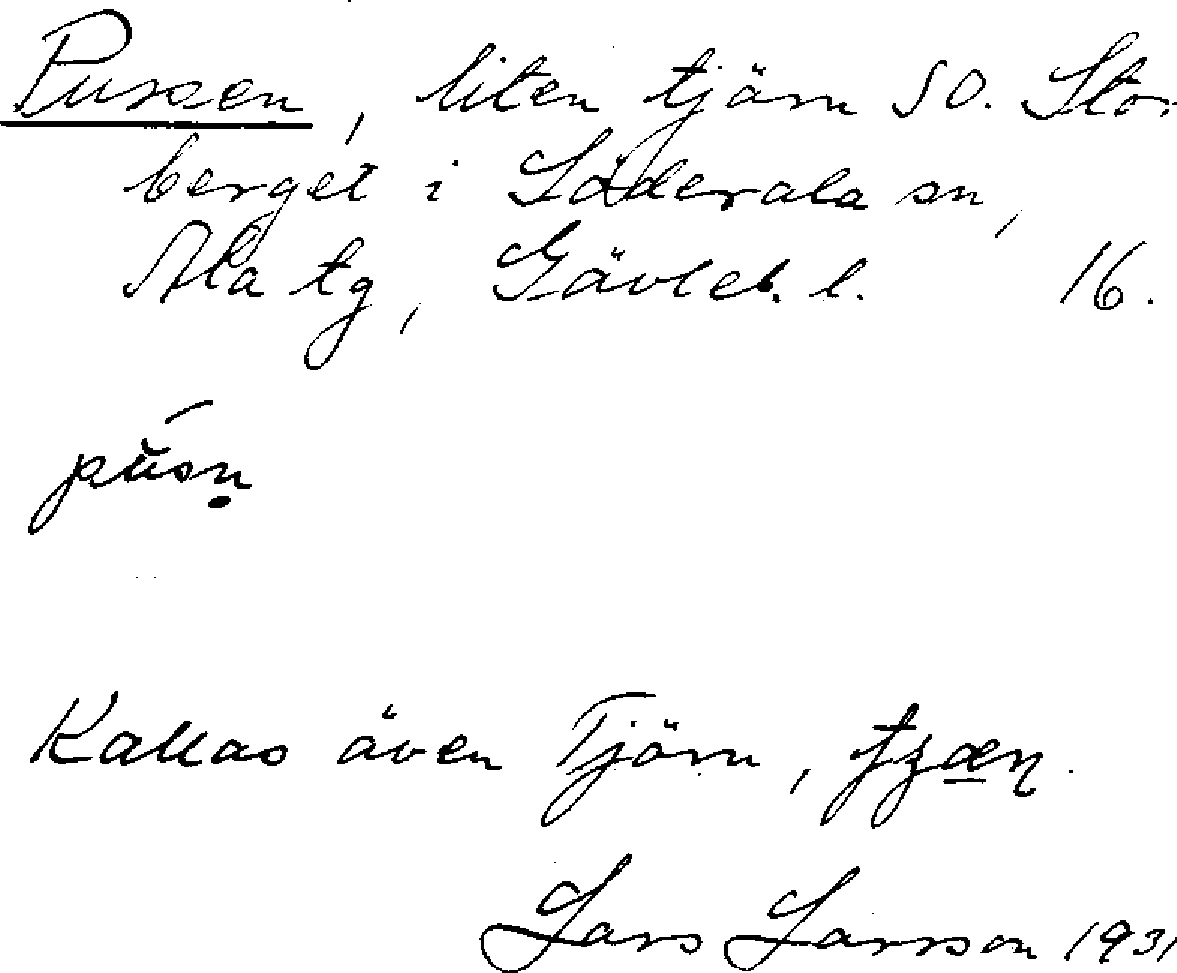 Pussen, liten tjärn SO. Stor
berget i Söderala sn,
Ala tg, Gävleb. l. 16.
pŭsn̥
Kallas även Tjärn,
Lars Larsson 1931